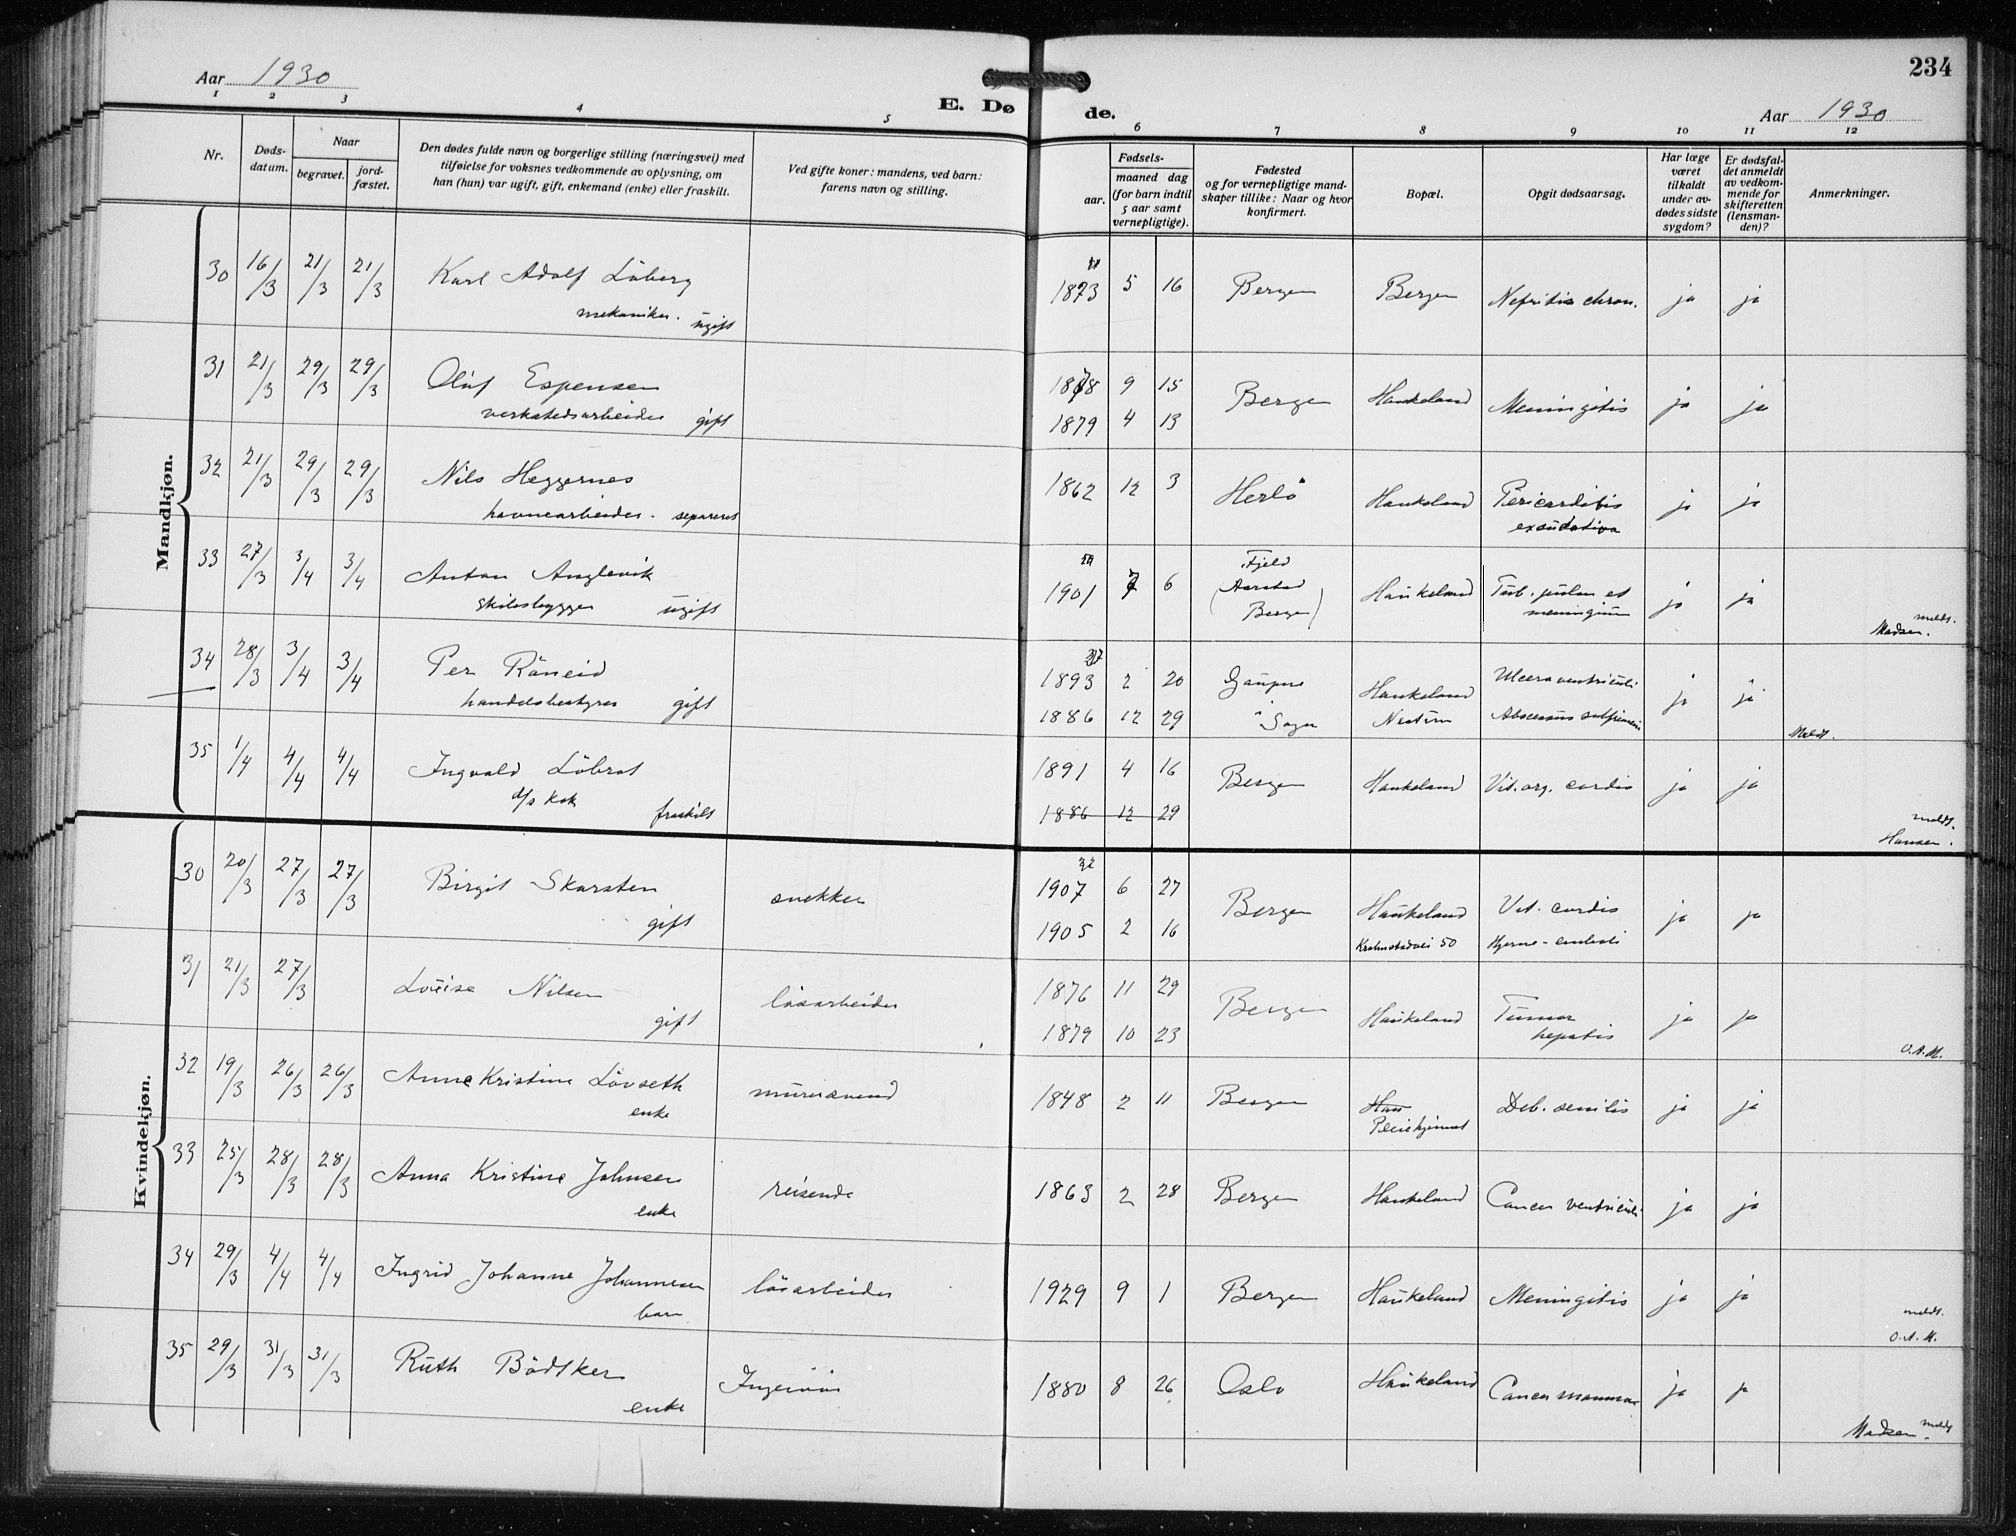 234
Aar 1930
E. Dø
de.
Aar 1930
1 2 3 4 5 6 7 8 9 10 11 12
Nr.
Døds-
datum.
Naar
begravet.
jord-
fæstet.
Den dødes fulde navn og borgerlige stilling (næringsvei) med
tilføielse for voksnes vedkommende av oplysning, om
han (hun) var ugift, gift, enkemand (enke) eller fraskilt.
Ved gifte koner: mandens, ved barn:
farens navn og stilling.
Fødsels-
aar.
maaned dag
(for barn indtil
5 aar samt
vernepligtige).
Fødested
og for vernepligtige mand-
skaper tillike: Naar og hvor
konfirmert.
Bopæl.
Opgit dødsaarsag.
Har læge
været
tilkaldt
under av-
dødes sidste
sygdom?
Er dødsfal-
det anmeldt
av vedkom-
mende for
skifteretten
(lensman-
den)?
Anmerkninger.
Mandkjøn.
30 16/3 21/3 21/3 Karl Adolf Löberg 1873 5 16 Bergen Bergen Nefritis chron. ja ja
mekaniker. ugift
31 21/3 29/3 29/3 Oluf Espensen 1878 9 15 Bergen Haukeland Meningitis ja ja
verkstedsarbeider gift 1879 4 13
32 21/3 29/3 29/3 Nils Heggernes 1862 12 3 Herlö Haukeland Pericarditis ja ja
havnearbeider. separert exsudativa
33 27/3 3/4 3/4 Anton Anglevik 1901 7 6 Fjeld Haukeland Tub. pulm et ja ja
skibsbygger ugift (Aarstad meningium
Bergen)
meldt.
Madsen.
34 28/3 3/4 3/4 Per Röneid 1893 2 20 Gaupne Haukeland Ulcera ventriculi ja ja
handelsbestyrer gift 1886 12 29 i Sogn Nestun Abscessus
Meldt.
35 1/4 4/4 4/4 Ingvald Löbrot 1891 4 16 Bergen Haukeland Vit. org. cordis ja ja
d/s kok fraskilt 1886 12 29
meldt.
Hansen.
Kvindekjøn.
30 20/3 27/3 27/3 Birgit Skarsten snekker 1907 6 27 Bergen Haukeland Vit. cordis ja ja
gift 1905 2 16 50 Hjerne-emboli
31 21/3 27/3 Louise Nilsen lösarbeider 1876 11 29 Bergen Haukeland Tumor ja ja
gift 1879 10 23 hepatis
O.A.M.
32 19/3 26/3 26/3 Anne Kristine Lövseth murersvend 1848 2 11 Bergen Hau Deb. senilis ja ja
enke Pleiehjemmet
33 25/3 28/3 28/3 Anna Kristine Johnsen reisende 1863 2 28 Bergen Haukeland Cancer ventriculi ja ja
enke
34 29/3 4/4 4/4 Ingrid Johanne Johannesen lösarbeider 1929 9 1 Bergen Haukeland Meningitis ja ja
barn
meldt.
O.A.M.
35 29/3 31/3 31/3 Ruth Bödtker Ingeniör 1880 8 26 Oslo Haukeland Cancer mammae ja ja
enke
Madsen. meldt